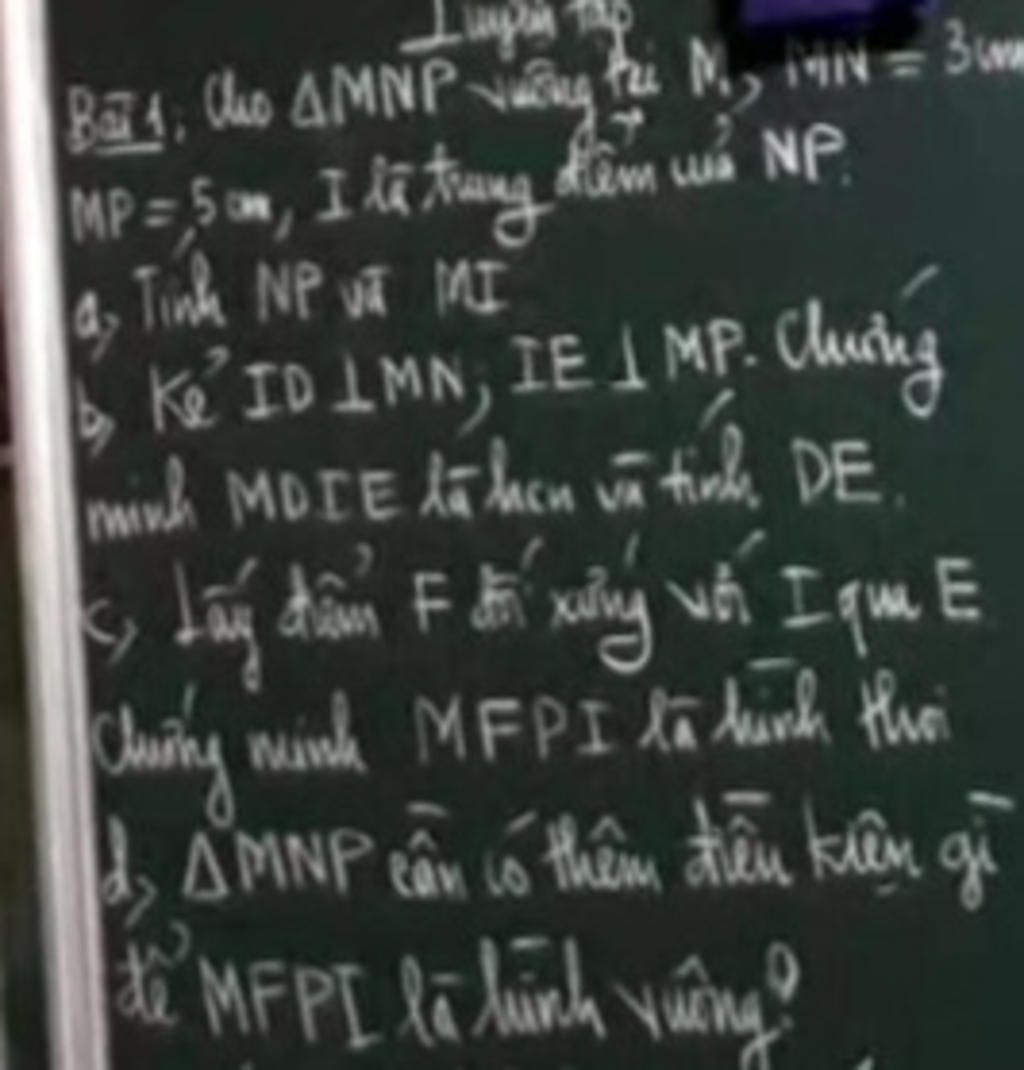 Luyện tập
Bài 1: Cho ΔMNP vuông tại M, MN = 3cm
MP = 5cm, I là trung điểm của NP.
a, Tính NP và MI
b, Kẻ ID ⊥ MN; IE ⊥ MP. Chứng
minh MDIE là hcn và tính DE.
c, Lấy điểm F đối xứng với I qua E
Chứng minh MFPI là hình thoi
d, ΔMNP cần có thêm điều kiện gì
để MFPI là hình vuông?